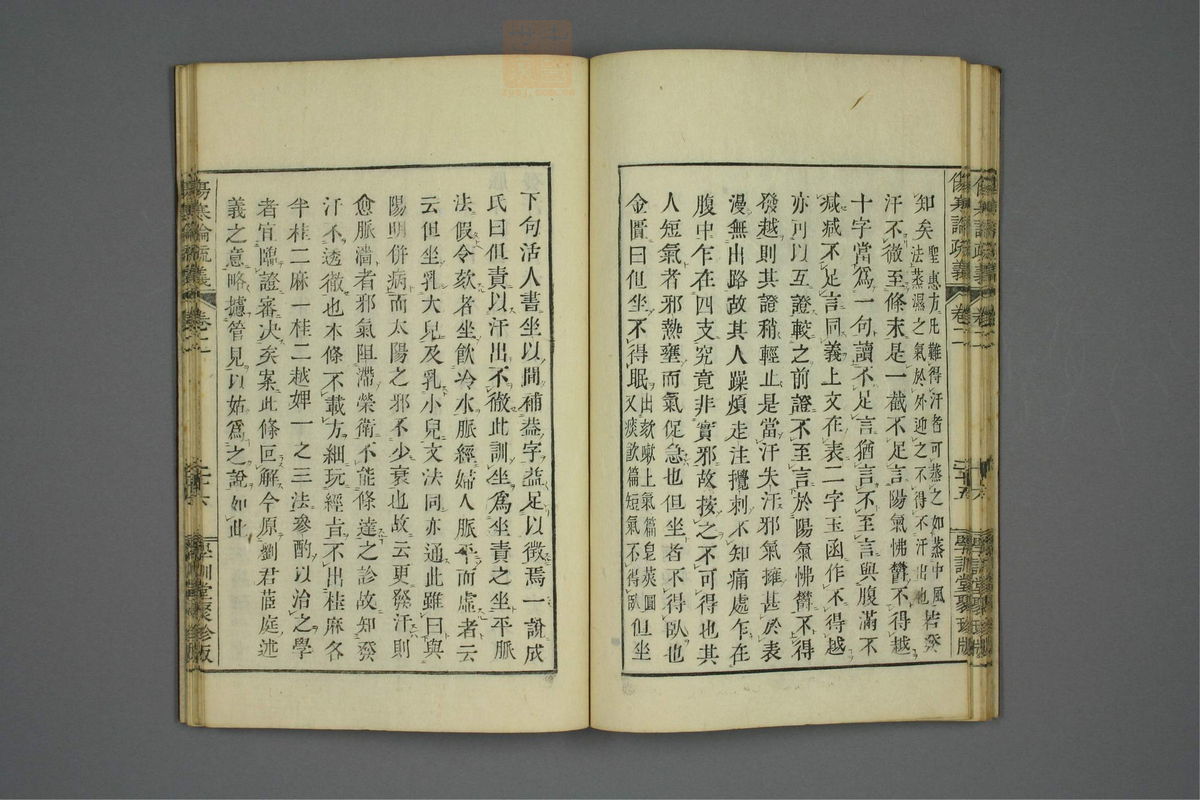 傷寒論疏義 卷二 二十五 學訓堂聚珍版
知矣聖惠方凡難得汗者可蒸之如蒸中風
法蒸濕之氣於外迎之不得不汗出也若發
汗不徹至條末是一截不足言陽氣怫鬱不得越
十字當爲一句讀不足言猶言不至言與腹滿不
減減不足言同義上文在表二字玉函作不得越
亦可以互證較之前證不至言於陽氣怫鬱不得
發越則其證稍輕止是當汗失汗邪氣擁甚於表
漫無出路故其人躁煩走注攪刺不知痛處乍在
腹中乍在四支究竟非實邪故按之不可得也其
人短氣者邪熱壅而氣促急也但坐者不得臥也
金匱曰但坐不得眠出欬嗽上氣篇皂莢圓
又痰飲篇短氣不得臥但坐
下句活人書坐以間補葢字益足以徵焉一說成
氏曰但責以汗出不徹此訓坐爲坐責之坐平脈
法假令欬者坐飲冷水脈經婦人脈平而虛者云
云但坐乳大兒及乳小兒文法同亦通此雖曰與
陽明併病而太陽之邪不少衰也故云更發汗則
愈脈濇者邪氣阻滯榮衛不能條達之診故知發
汗不透徹也本條不載方細玩經旨不出桂麻各
半桂二麻一桂二越婢一之三法參酌以治之學
者宜臨證審决矣案此條叵解今原劉君茝庭述
義之意略攄管見以姑爲之說如此
傷寒論疏義 卷之二 二十六 學訓堂聚珍版